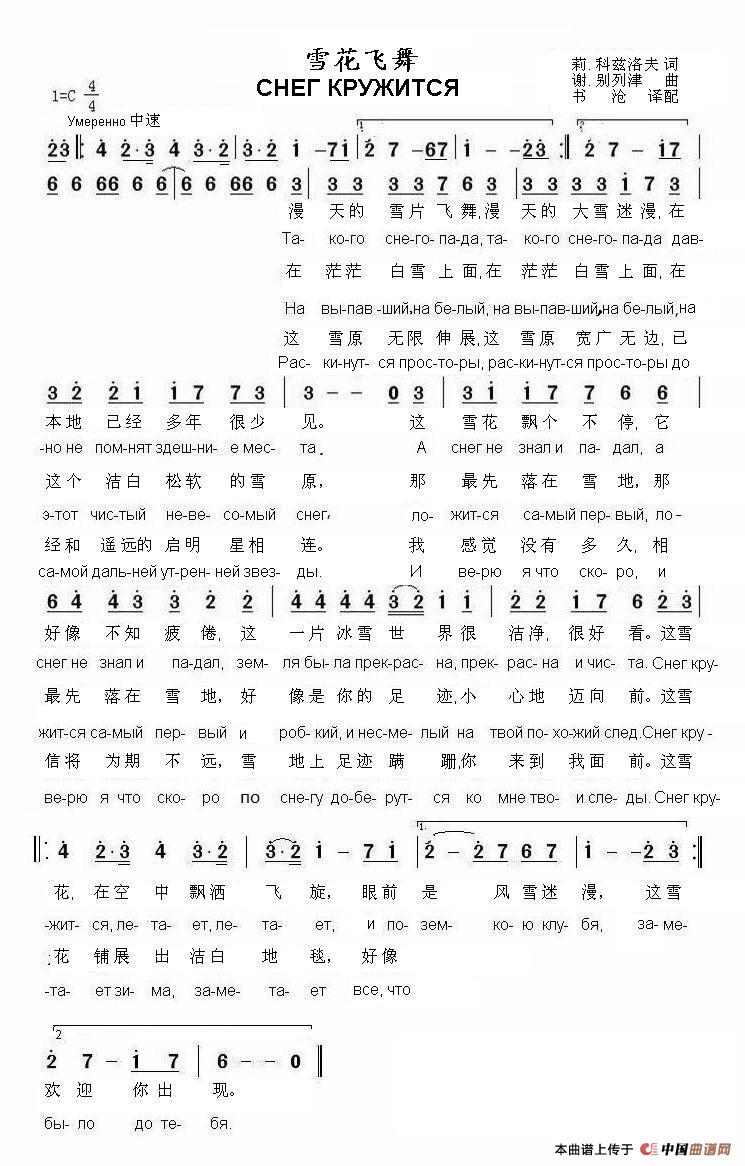 雪花飞舞
СНЕГ КРУЖИТСЯ
莉.科兹洛夫 词
谢.别列津 曲
书沧 译配
1=C 4/4
Умеренно 中速
1. 2.
23 |: 4 2·3 4 3·2 | 3·2 1 - 71 | 2 7 - 67 | 1 - - 23 :| 2 7 - 17 |
6 6 66 6 6 | 6 6 66 6 3 | 3 3 33 7 6 3 | 3 3 33 1 7 3 |
漫 天的 雪片 飞舞,漫 天的 大雪 迷漫,在
Та- ко-го сне-го- па-да, та- ко-го сне-го-па-да дав-
在 茫茫 白雪 上面,在 茫茫 白雪 上面,在
На вы-пав -ший,на бе-лый, на вы-пав-ший,на бе-лый,на
这 雪原 无限 伸展,这 雪原 宽广 无边,已
Рас- ки-нут-ся прос-то-ры, рас-ки-нут-ся прос-то-ры до
3 2 2 1 1 7 7 3 | 3 - - 0 3 | 3 1 1 7 7 6 6 |
本地 已经 多年 很少 见。 这 雪花 飘个 不 停,它
-но не пом-нят здеш-ни- е мес- та. А снег не знал и па-дал, а
这个 洁白 松软 的雪 原, 那 最先 落在 雪 地,那
э-тот чис-тый не-ве- со-мый снег, ло- жит-ся са-мый пер-вый, ло-
经和 遥远的 启明 星相 连。 我 感觉 没有 多 久,相
са-мой даль-ней ут-рен- ней звез- ды. И ве-рю я что ско-ро, и
6 4 4 3 3 2 2 | 4 4 4 4 3 2 1 1 | 2 2 1 7 6 2 3 |
好像 不知 疲 倦, 这 一片 冰雪 世 界很 洁净, 很好 看。这雪
снег не знал и па-дал, зем- ля бы-ла прек-рас- на, прек- рас- на и чис- та. Снег кру-
最先 落在 雪 地, 好 像是 你的 足 迹,小 心地 迈向 前。这雪
жит-ся са-мый пер- вый и роб- кий, и нес-ме- лый на твой по- хо-жий след.Снег кру -
信将 为期 不 远, 雪 地上 足迹 蹒 跚,你 来到 我面 前。这雪
ве-рю я что ско- ро по сне-гу до-бе- рут- ся ко мне тво- и сле- ды. Снег кру-
1.
|: 4 2·3 4 3·2 | 3·2 1 - 7 1 | 2 - 2 7 6 7 | 1 - - 2 3 :|
花, 在空 中 飘洒 飞 旋, 眼前 是 风 雪迷 漫, 这雪
-жит-ся, ле-та- ет, ле- та- ет, и по- зем- ко-ю клу- бя, за-ме-
花 铺展 出 洁白 地 毯, 好像
-та- ет зи- ма, за-ме- та- ет все, что
2
2 7 - 1 7 | 6 - - 0 ‖
欢 迎 你 出 现。
бы-ло до те- бя.
本曲谱上传于 中国曲谱网